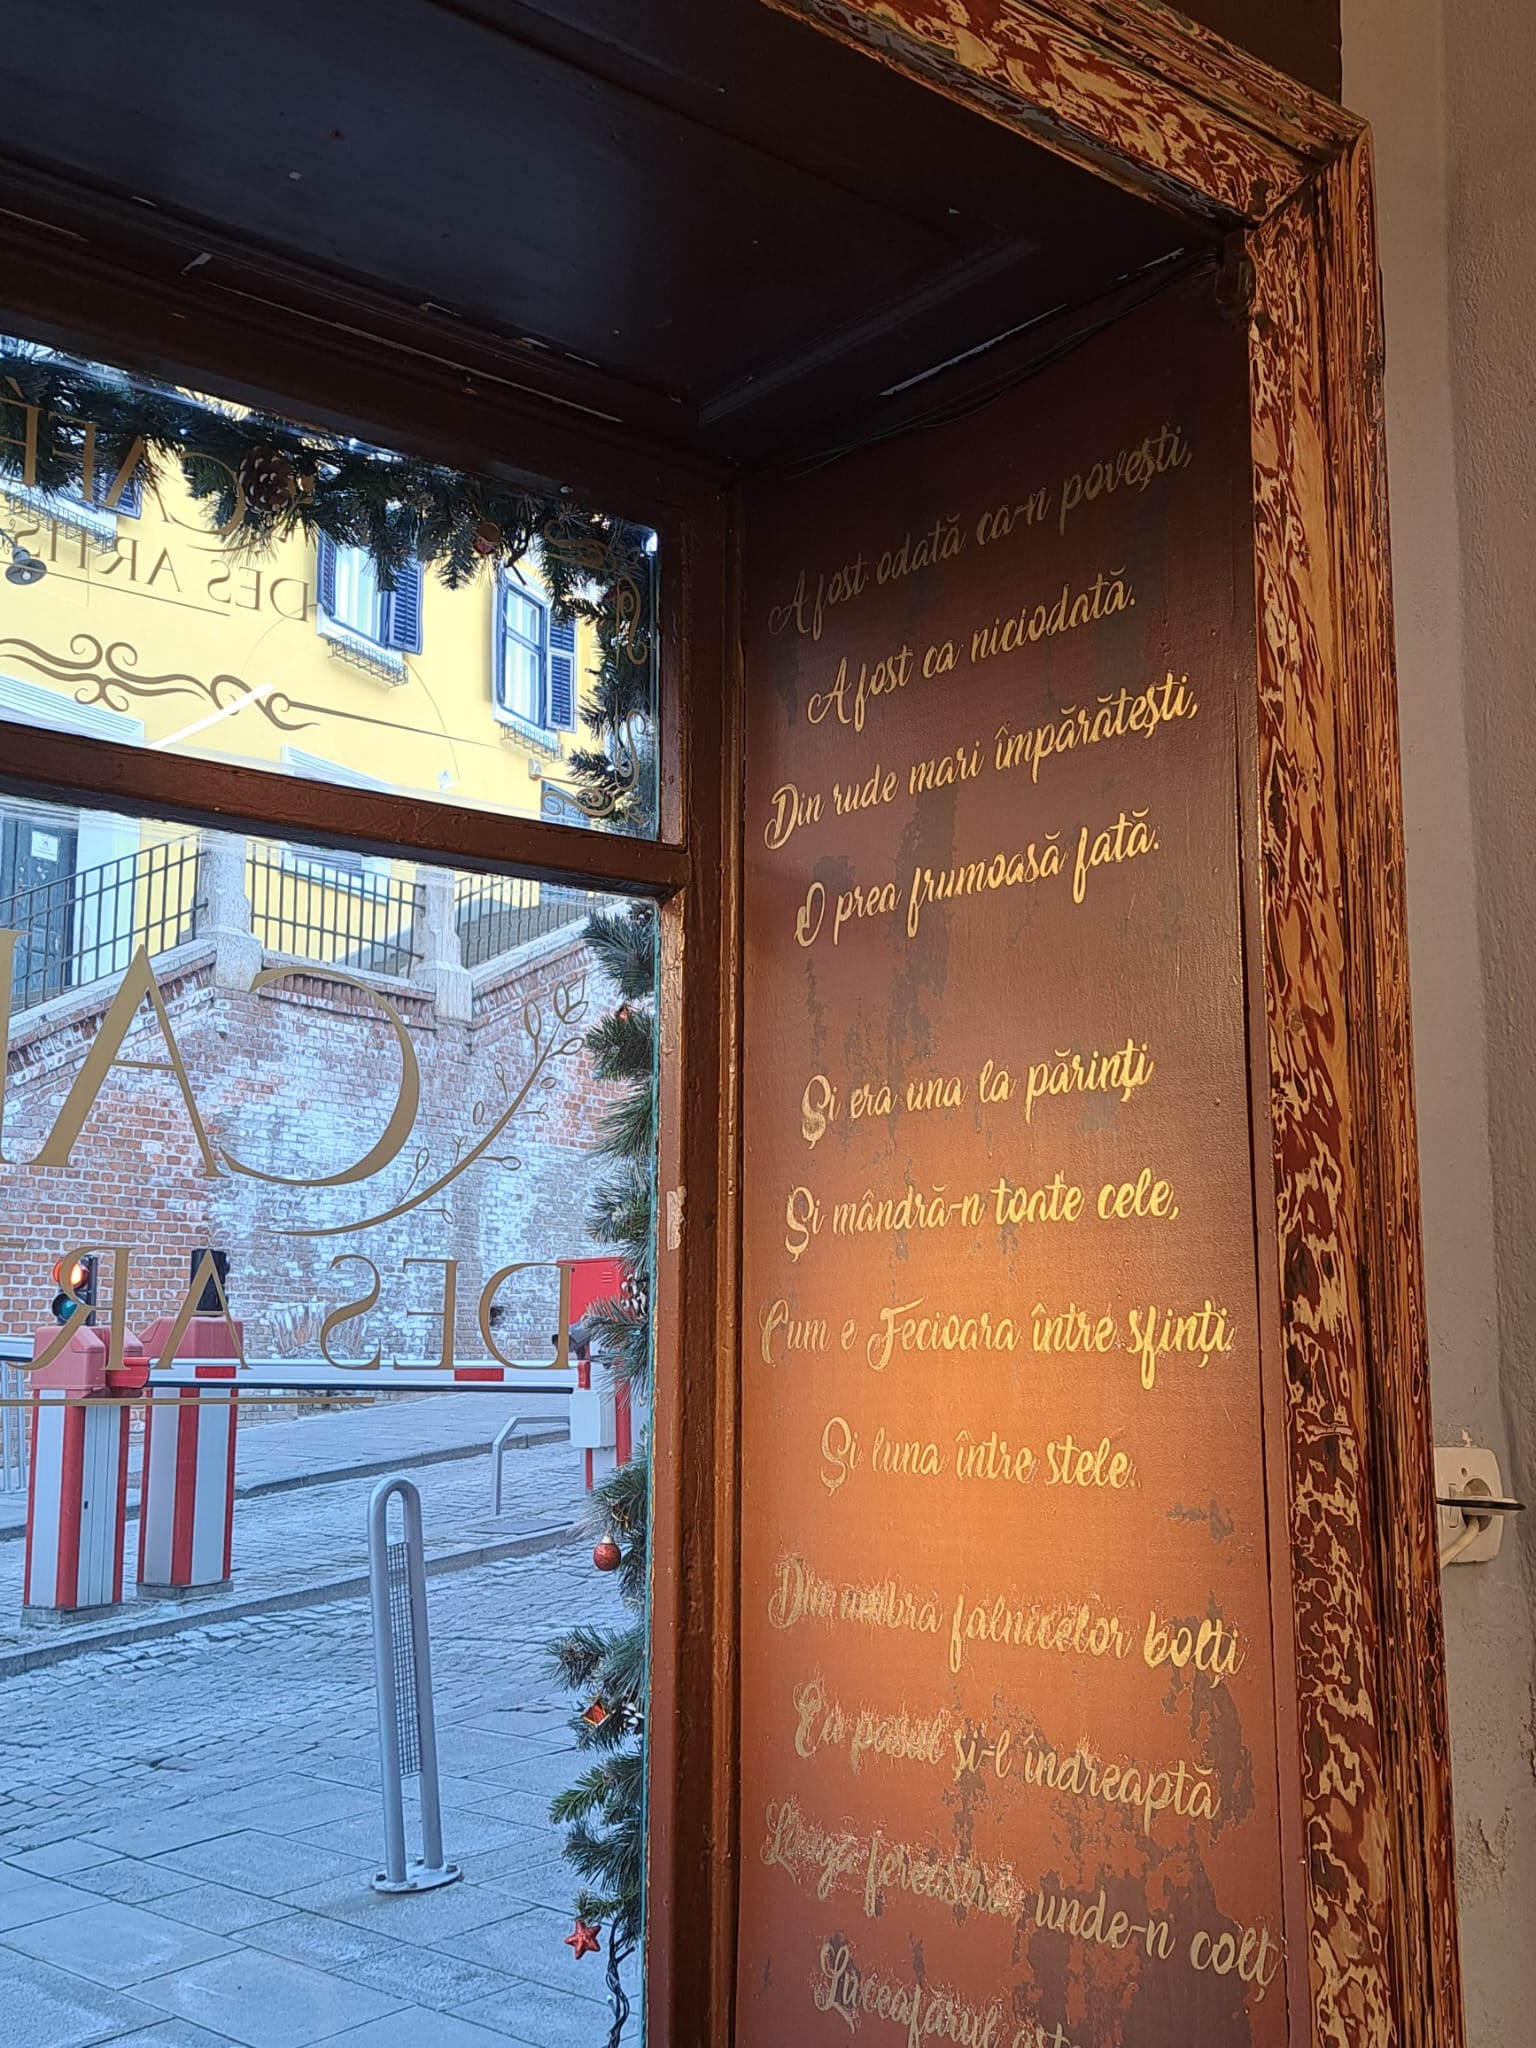 CAFÉ
DES ARTIS
CA
DES AR
A fost odată ca-n povești,
A fost ca niciodată.
Din rude mari împărătești,
O prea frumoasă fată.
Și era una la părinți
Și mândră-n toate cele,
Cum e Fecioara între sfinți
Și luna între stele.
Din umbra falnicelor bolți
Ea pasul și-l îndreaptă
Lângă fereastră, unde-n colț
Luceafărul